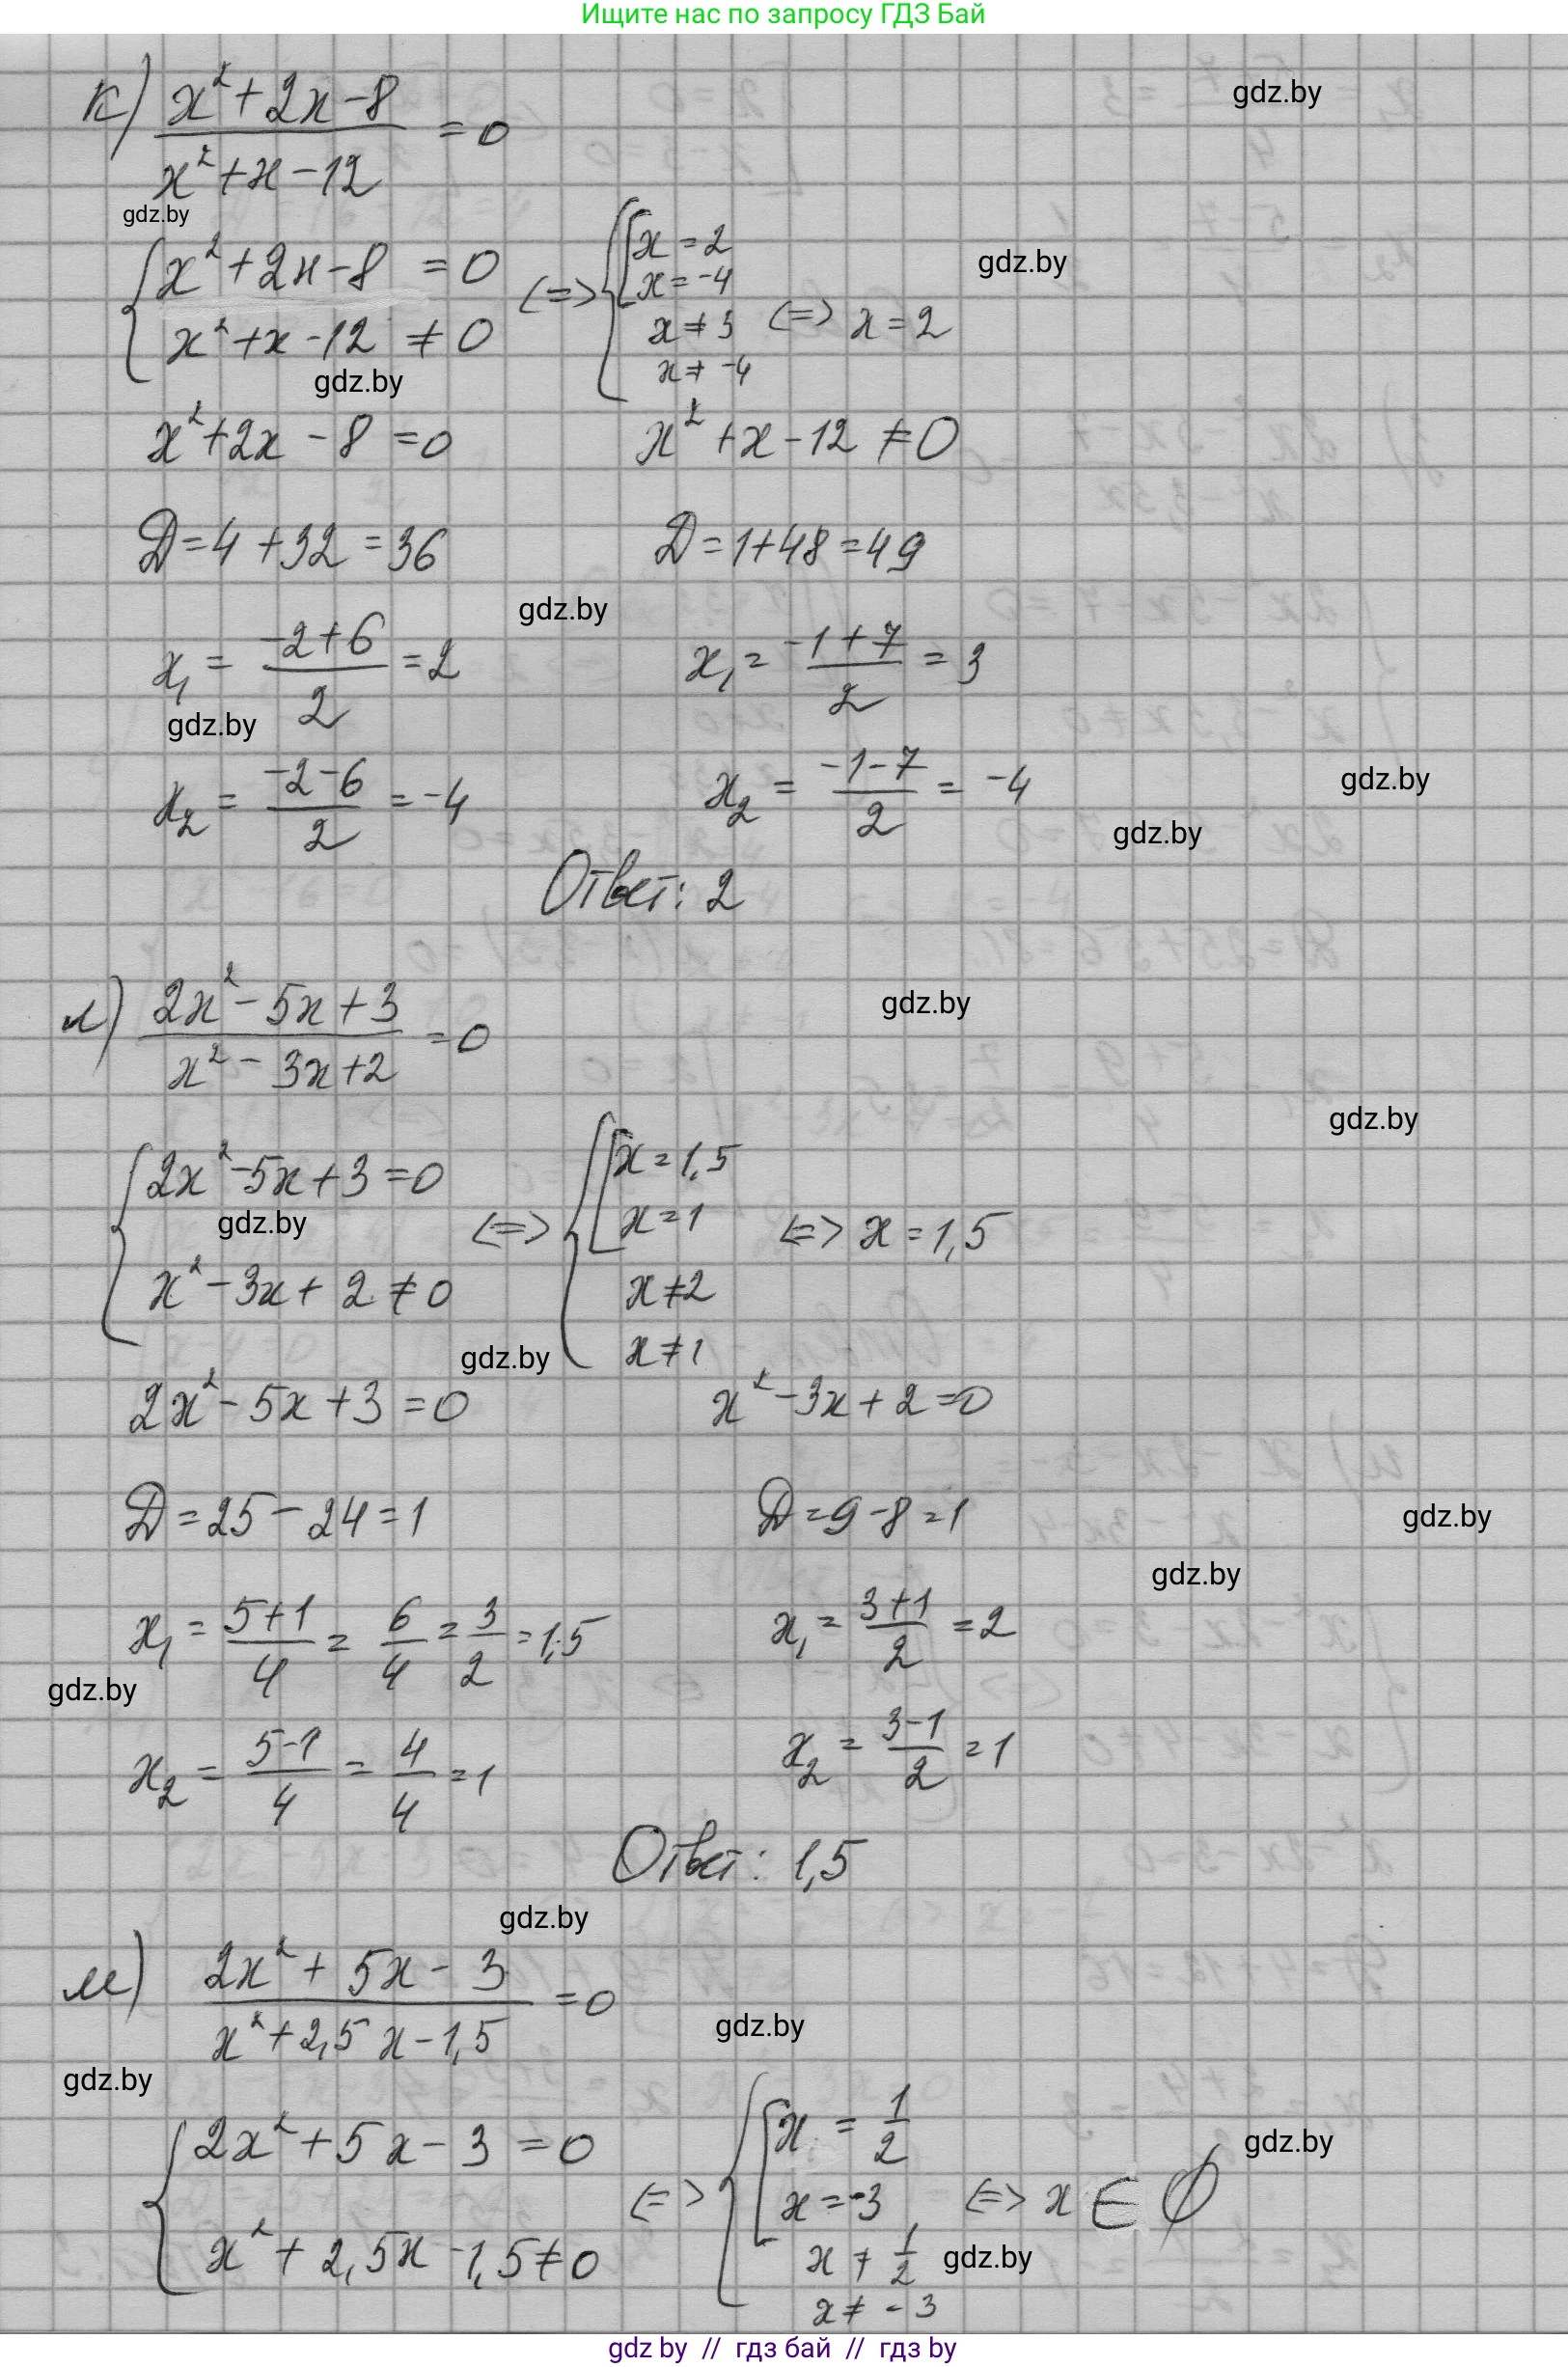 Ищите нас по запросу ГДЗ Бай
gdz.by
к) (x²+2x-8)/(x²+x-12) = 0
gdz.by
{x²+2x-8 = 0; x²+x-12 ≠ 0 <=> {[x = 2; x = -4; x ≠ 3; x ≠ -4 <=> x = 2
gdz.by
gdz.by
x²+2x - 8 = 0 x² + x - 12 ≠ 0
D = 4 + 32 = 36 D = 1+48 = 49
gdz.by
x₁ = (-2+6)/2 = 2 x₁ = (-1+7)/2 = 3
gdz.by
x₂ = (-2-6)/2 = -4 x₂ = (-1-7)/2 = -4
gdz.by
gdz.by
Ответ: 2
л) (2x²-5x+3)/(x²-3x+2) = 0
gdz.by
gdz.by
{2x²-5x+3 = 0; x²-3x+2 ≠ 0 <=> {[x = 1,5; x = 1; x ≠ 2; x ≠ 1 <=> x = 1,5
gdz.by
gdz.by
2x²-5x+3 = 0 x²-3x+2 = 0
D = 25 - 24 = 1 D = 9-8 = 1
gdz.by
gdz.by
x₁ = (5+1)/4 = 6/4 = 3/2 = 1,5 x₁ = (3+1)/2 = 2
gdz.by
x₂ = (5-1)/4 = 4/4 = 1 x₂ = (3-1)/2 = 1
Ответ: 1,5
gdz.by
м) (2x²+5x-3)/(x²+2,5x-1,5) = 0
gdz.by
gdz.by
{2x²+5x-3 = 0; x²+2,5x-1,5 ≠ 0 <=> {[x = 1/2; x = -3; x ≠ 1/2; x ≠ -3 <=> x ∈ ∅
gdz.by
gdz.by
gdz by // гдз бай // гдз by